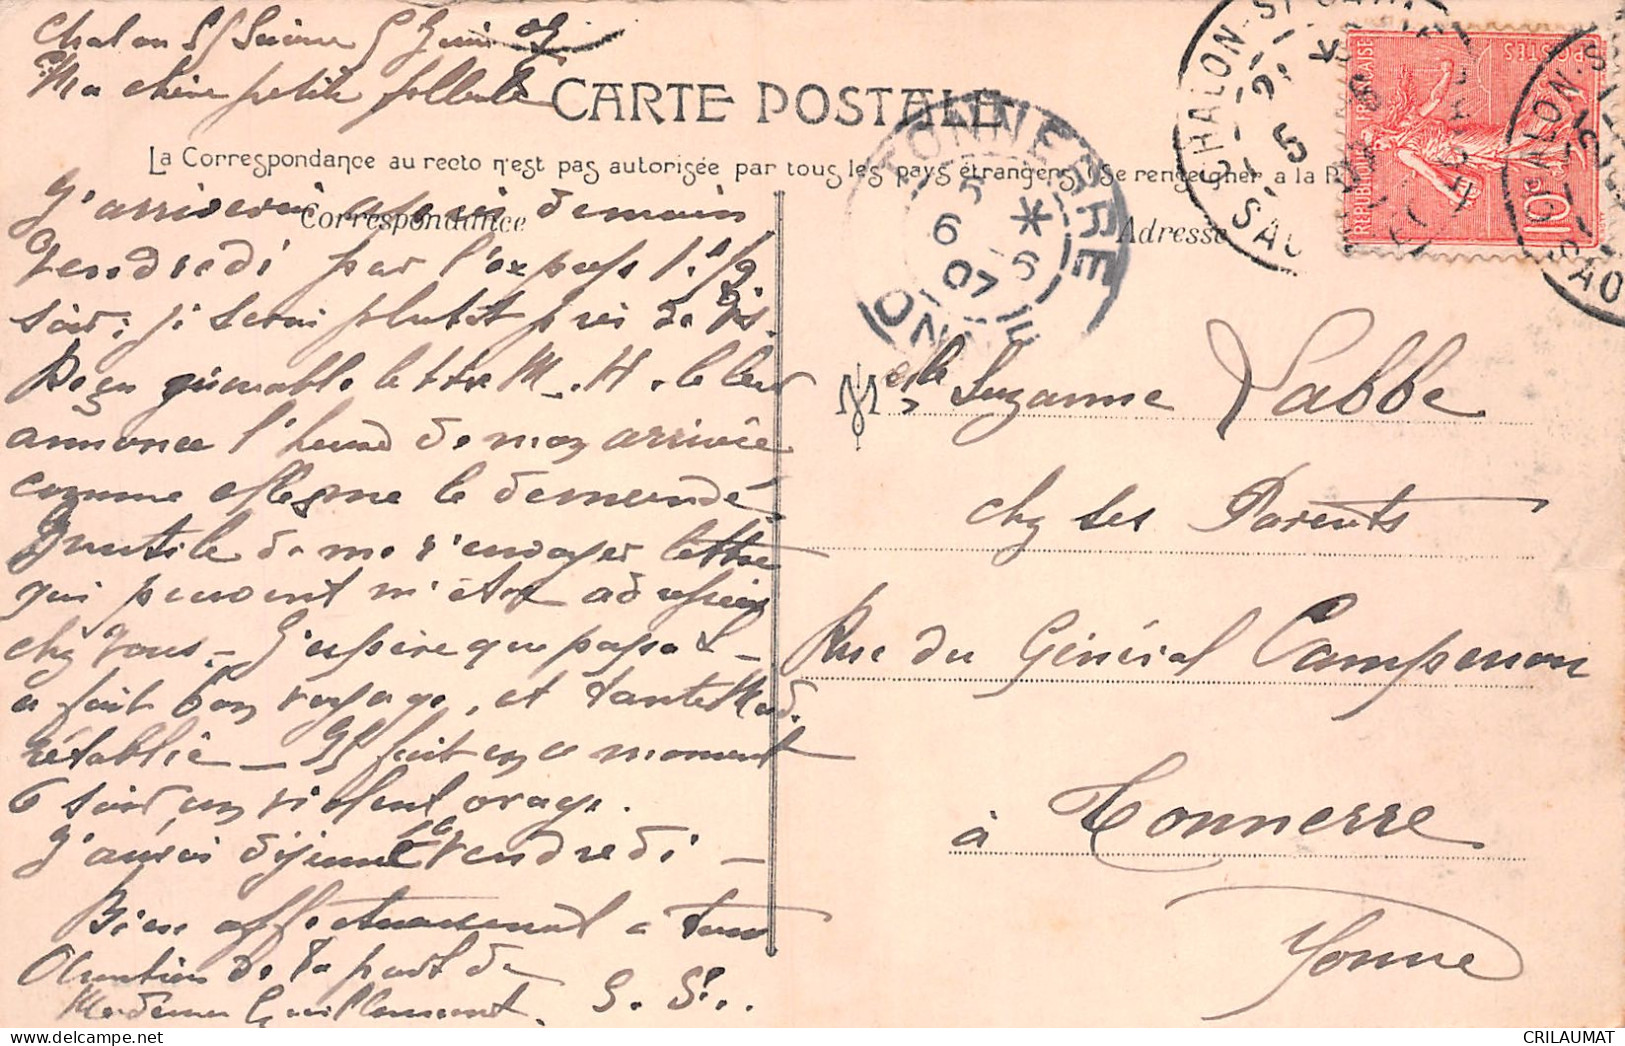 Chalon S/ Saône 5 Juin 07
Ma chère petite follette
CARTE POSTALE
La Correspondance au recto n'est pas autorisée par tous les pays étrangers (Se renseigner à la
Correspondance
Adresse
J'arriverai après demain
Vendredi par l'express
soir; je serai plutôt près de
annonce l'heure de mon arrivée
comme elle me le demande
Inutile de me renvoyer lettre
qui peuvent m'être adressées
chez vous. J'espère que papa L
a fait bon voyage, et tante Mad.
rétablie _ Il fait en ce moment
6 soir un violent orage.
J'aurai déjeuné Vendredi _
Bien affectueusement a tous
Attention de ta part de
Madame Guillemont. S. St.
Melle Suzanne Labbe
chez ses Parents
Rue du Général Campenon
à Tonnerre
Yonne
TONNERRE
5 *
6 -6
07
YONNE
CHALON-S
5
SAO
REPUBLIQUE FRANÇAISE
POSTES
10c
CHALON-S
SAO
CRILAUMAT